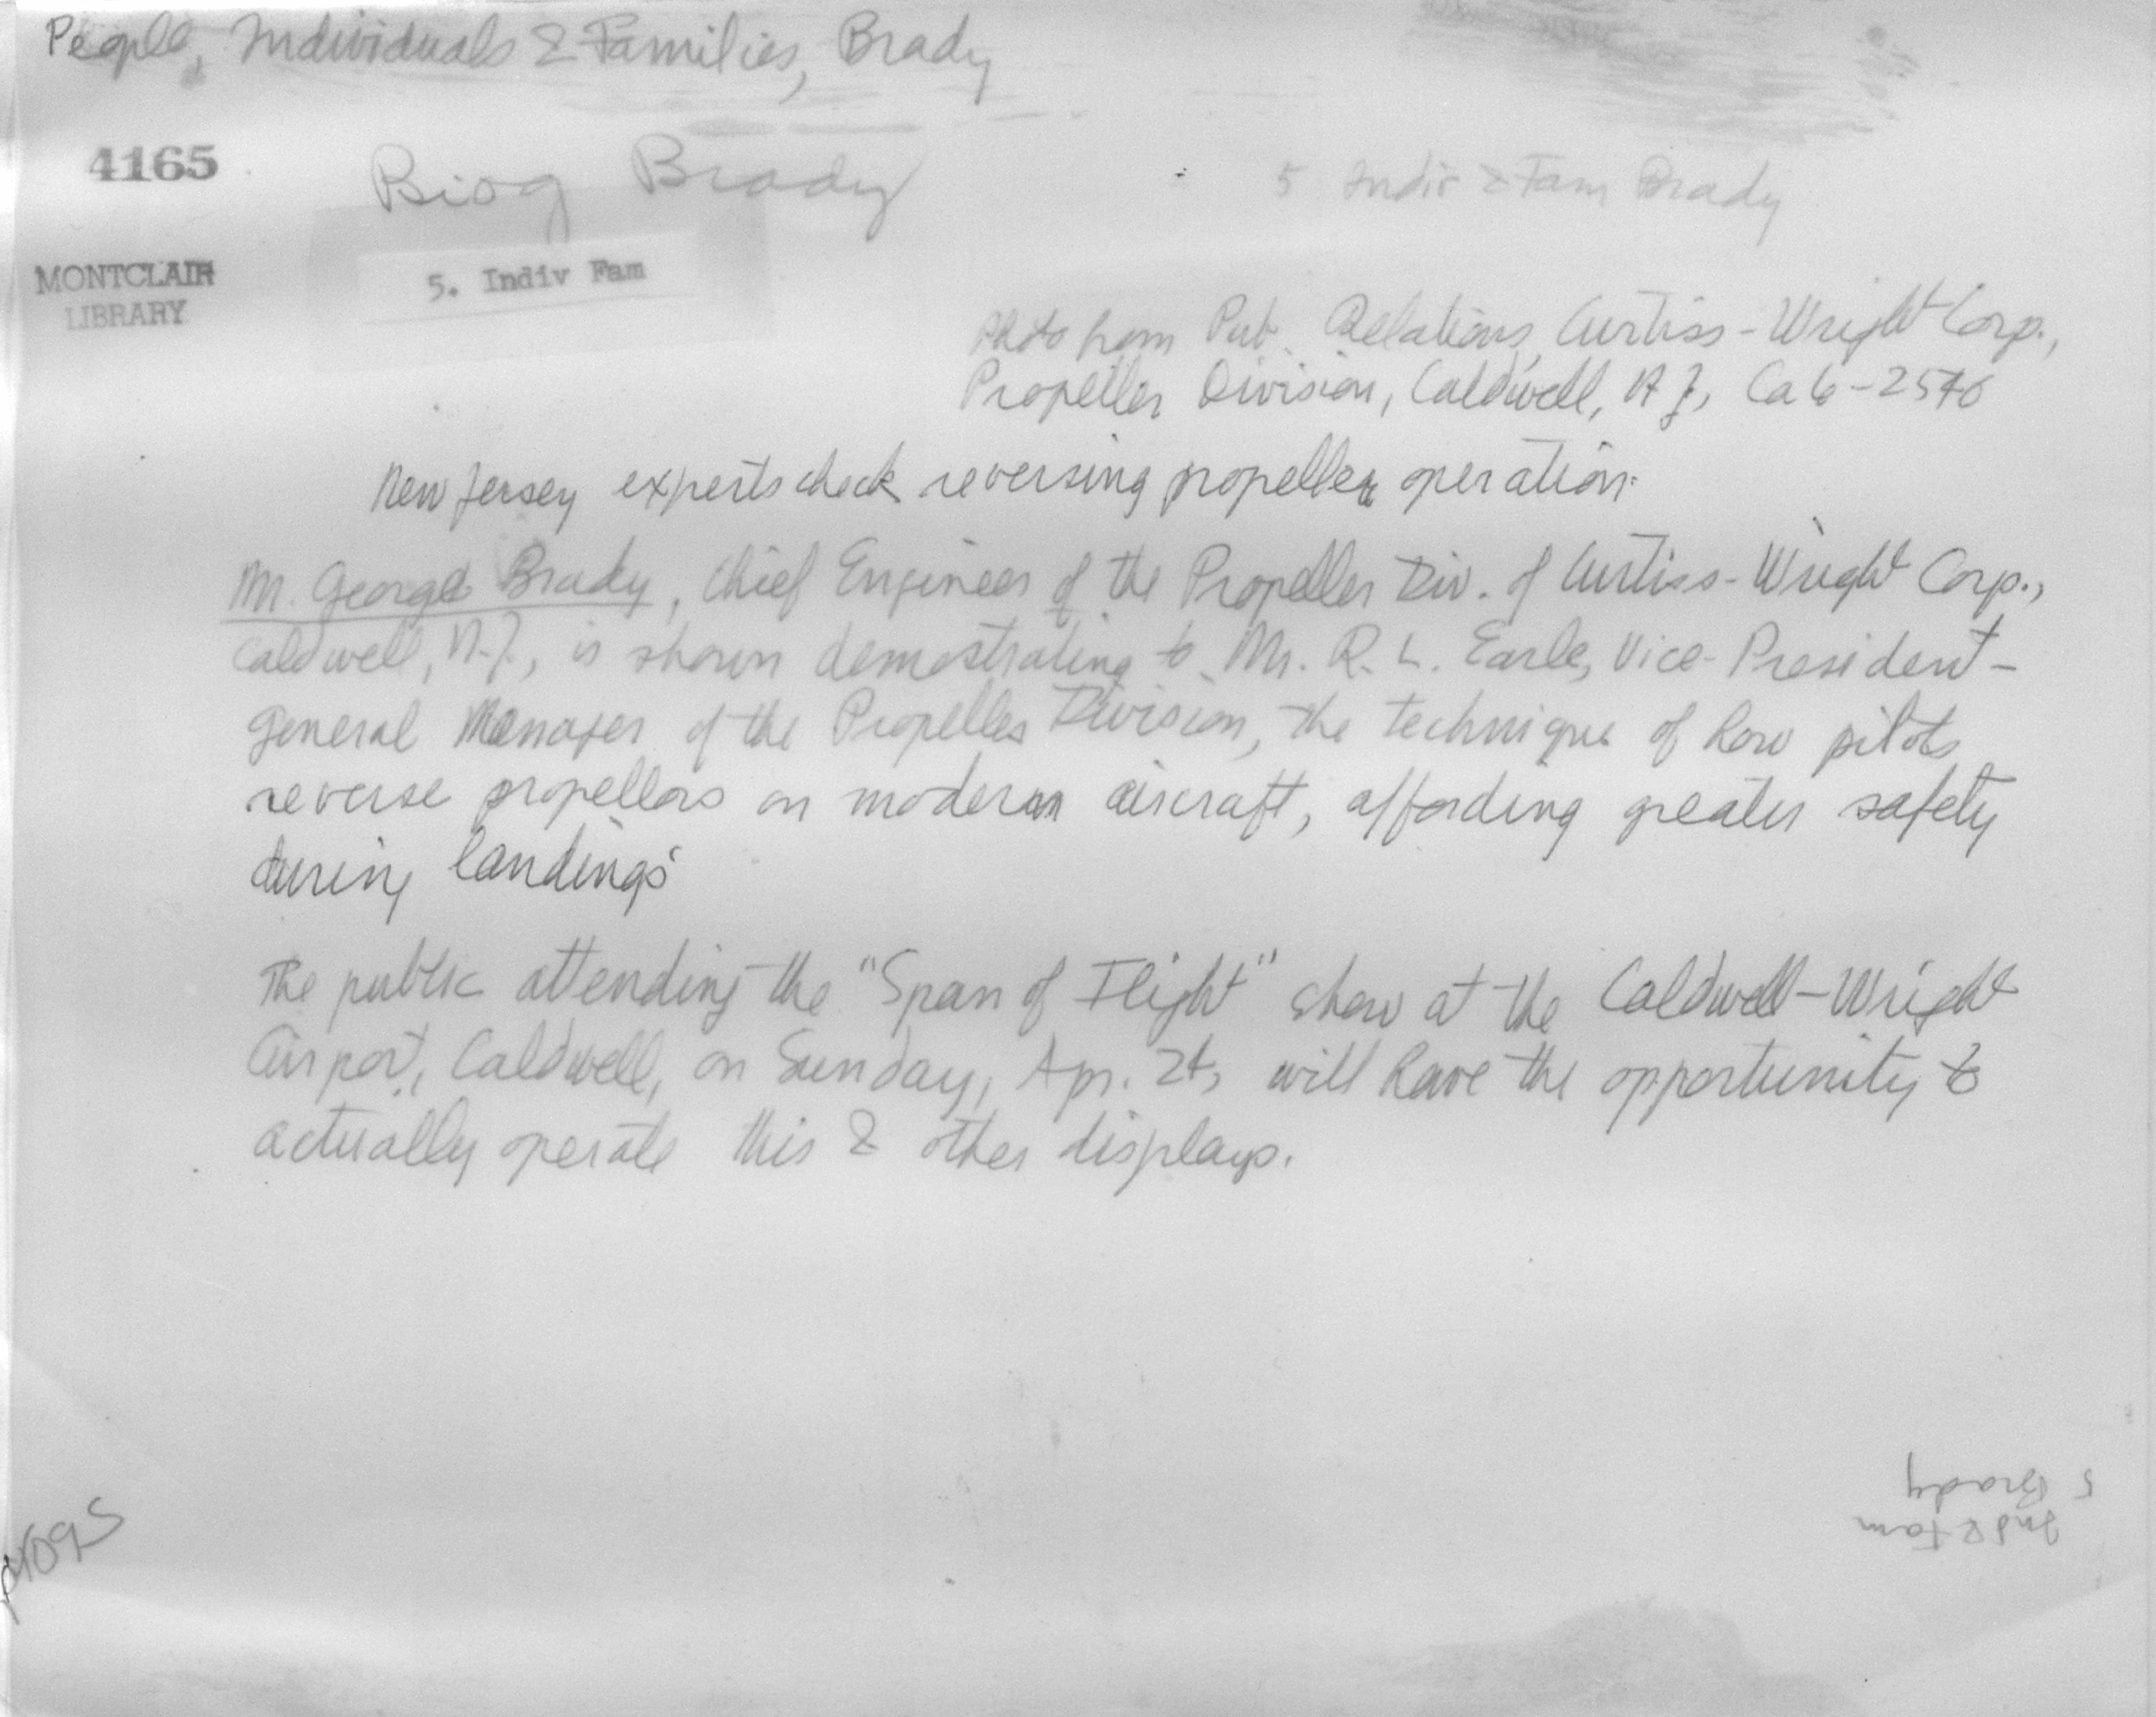 People, Individuals & Families, Brady
4165
Biog Brady
5 Indiv & Fam Brady
MONTCLAIR
LIBRARY
5. Indiv Fam
Photo from Pub. Relations, Curtiss-Wright Corp.,
Propeller Division, Caldwell, N.J., Ca 6-2540
New Jersey experts check reversing propeller operation.
Mr. George Brady, Chief Engineer of the Propeller Div. of Curtiss-Wright Corp.,
Caldwell, N.J., is shown demostrating to Mr. R. L. Earle, Vice-President-
General Manager of the Propeller Division, the technique of how pilots
reverse propellors on modern aircraft, affording greater safety
during landings
The public attending the "Span of Flight" show at the Caldwell-Wright
Airport, Caldwell, on Sunday, Apr. 24, will have the opportunity to
actually operate this & other displays.
5 Brady
Ind & Fam